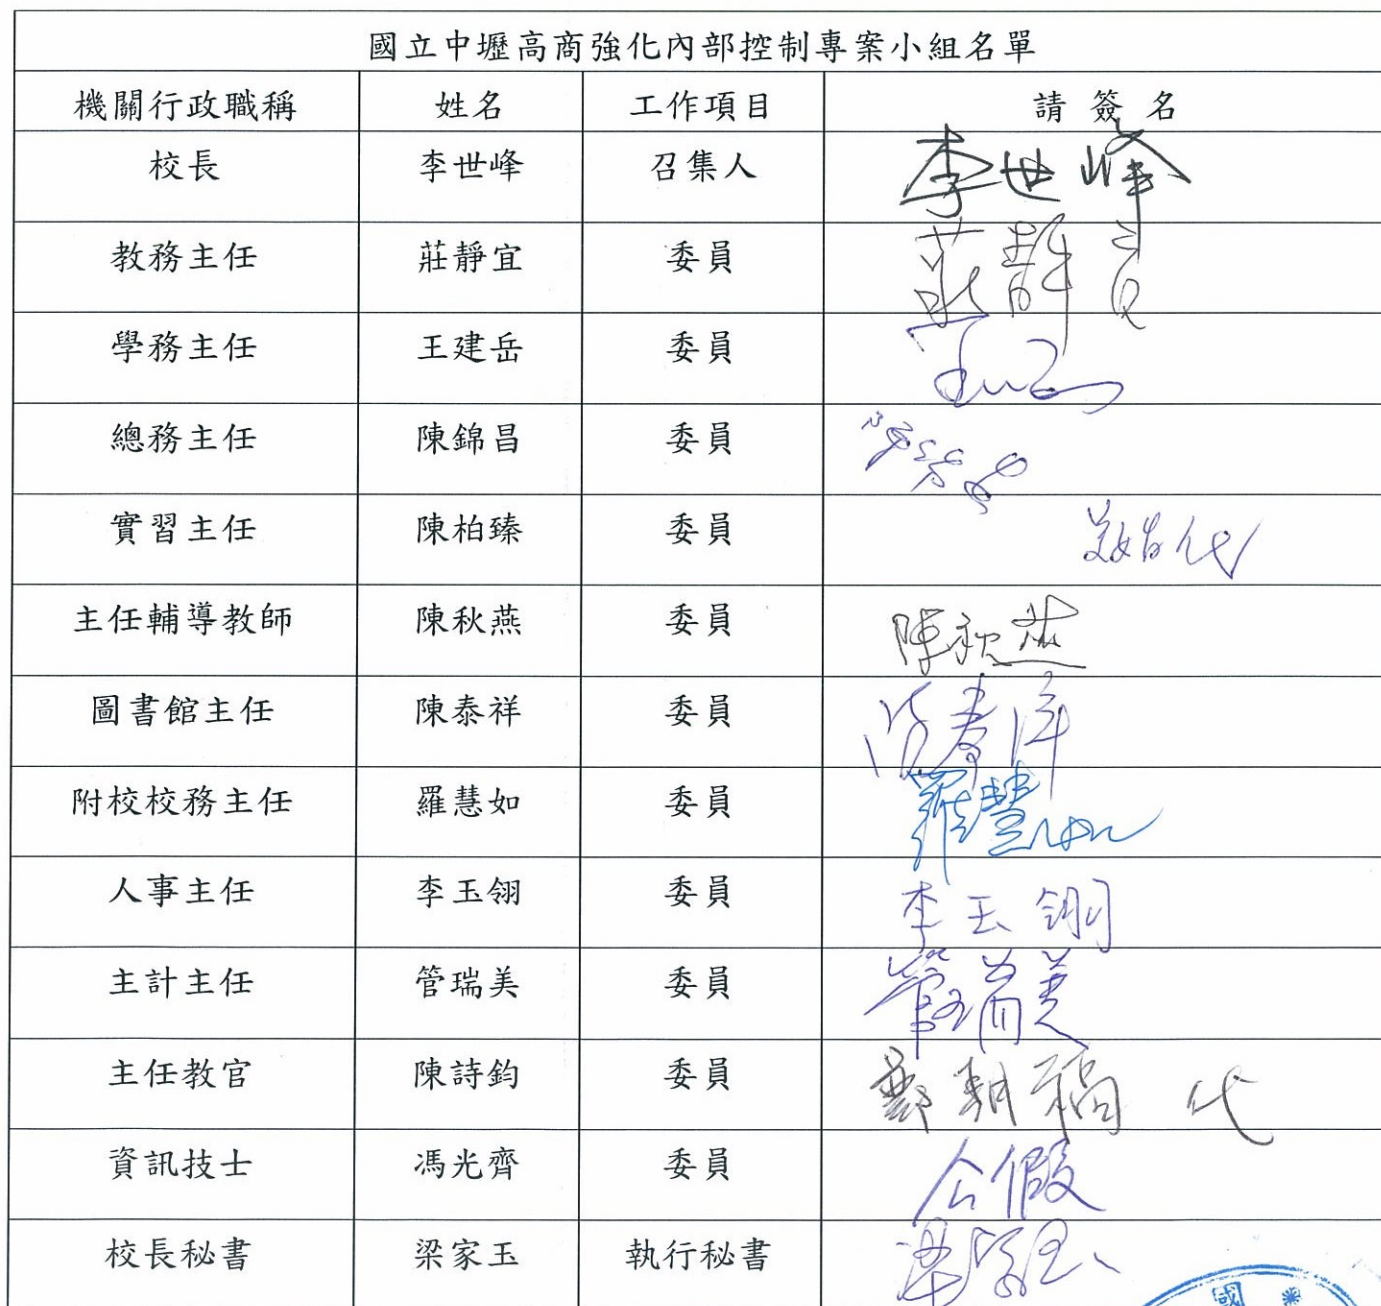 國立中壢高商強化內部控制專案小組名單
機關行政職稱 姓名 工作項目 請簽名
校長 李世峰 召集人 李世峰
教務主任 莊靜宜 委員 莊靜宜
學務主任 王建岳 委員
總務主任 陳錦昌 委員
實習主任 陳柏臻 委員 代
主任輔導教師 陳秋燕 委員 陳秋燕
圖書館主任 陳泰祥 委員 陳泰祥
附校校務主任 羅慧如 委員 羅慧如
人事主任 李玉翎 委員 李玉翎
主計主任 管瑞美 委員 管瑞美
主任教官 陳詩鈞 委員 鄭朝福 代
資訊技士 馮光齊 委員 公假
校長秘書 梁家玉 執行秘書 梁家玉
國